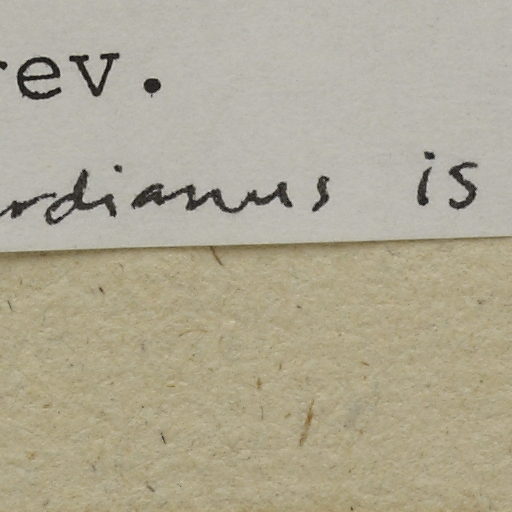 rev.
rdianus is